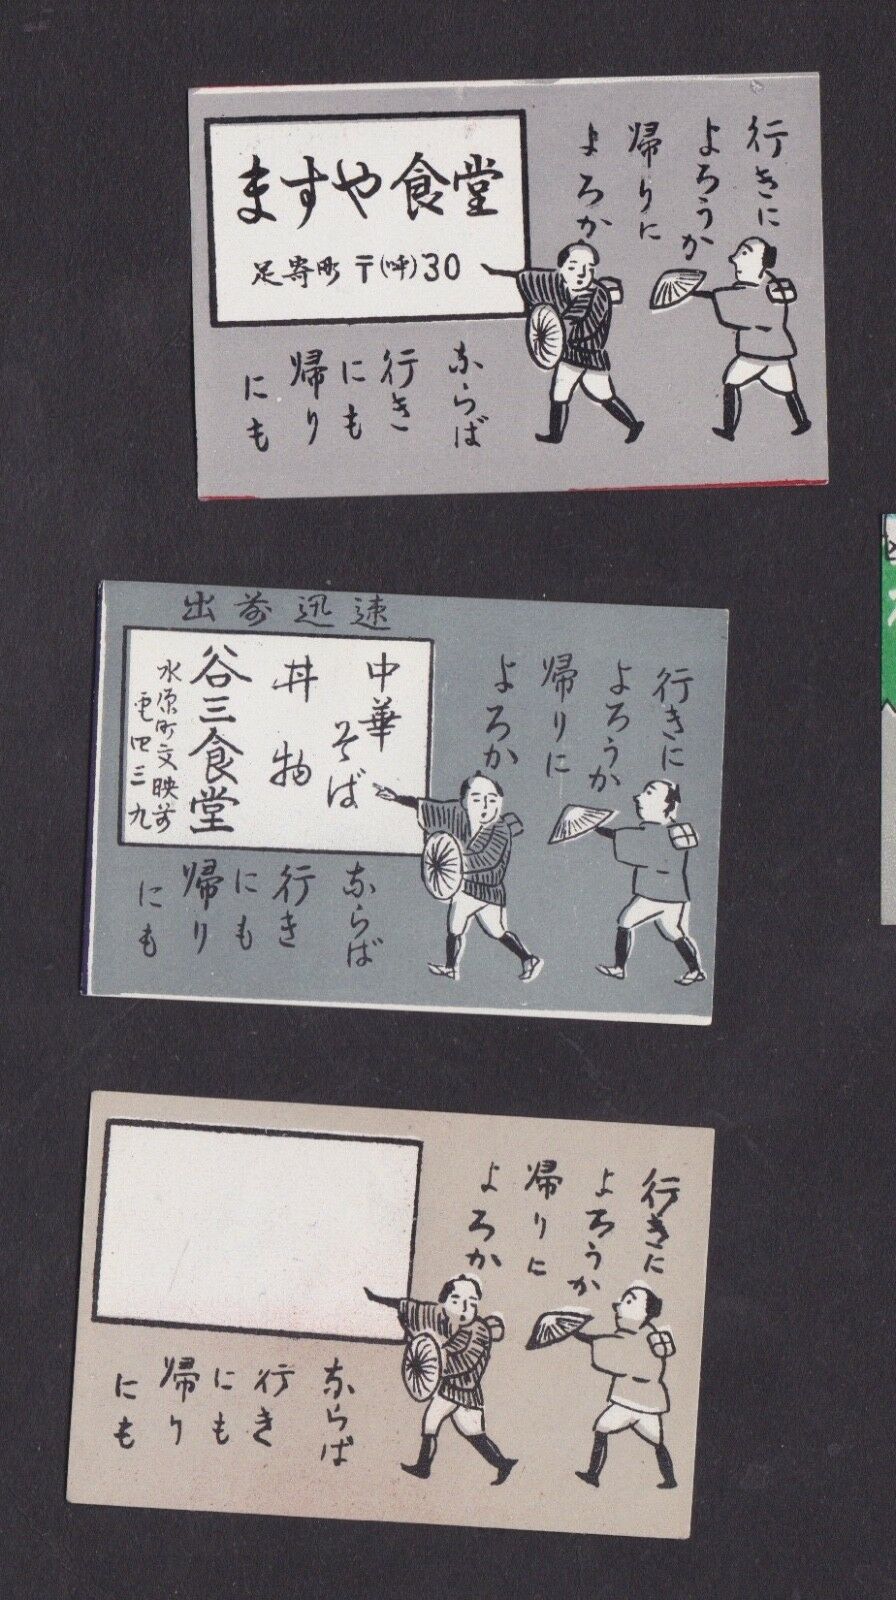 行きに
よろうか
帰りに
よろか
ますや食堂
足寄町 〒(呼)30
ならば
行き
にも
帰り
にも
出前迅速
行きに
よろうか
帰りに
よろか
中華
そば
丼物
谷三食堂
水原町文映前
電四三九
ならば
行き
にも
帰り
にも
行きに
よろうか
帰りに
よろか
ならば
行き
にも
帰り
にも